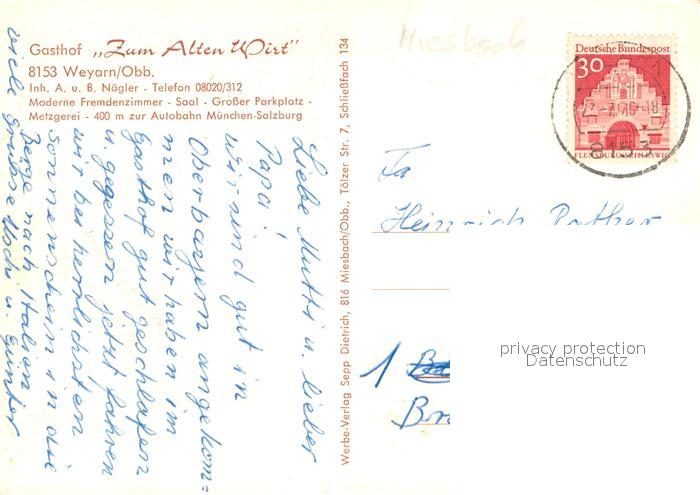 Gasthof „Zum Alten Wirt"
8153 Weyarn/Obb.
Inh. A. u. B. Nägler - Telefon 08020/312
Moderne Fremdenzimmer - Saal - Großer Parkplatz -
Metzgerei - 400 m zur Autobahn München-Salzburg
Liebe Mutti u. lieber
Papa!
Wir sind gut in
Oberbayern angekom=
men wir haben im
Gasthof gut geschlafen
u. gegessen jetzt fahren
wir bei herrlichsten
Sonnenschein in die
Berge nach Italien
viele Grüsse Uschi u. Günter
Werbe-Verlag Sepp Dietrich, 816 Miesbach/Obb., Tölzer Str. 7, Schließfach 134
Miesbach
Deutsche Bundespost
30
FLENSBURG/SCHLESWIG
8153
Fa
Heinrich
1
privacy protection
Datenschutz